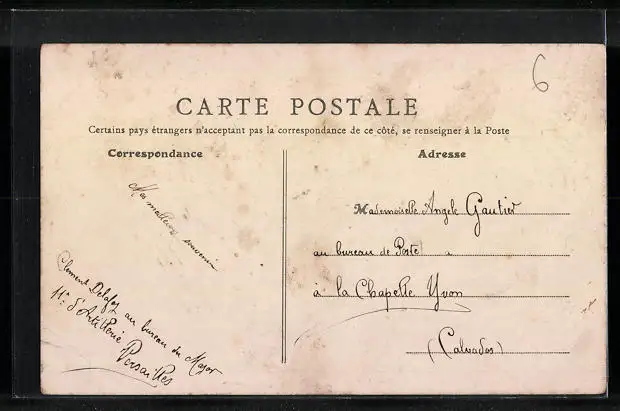 6
CARTE POSTALE
Certains pays étrangers n'acceptant pas la correspondance de ce côté, se renseigner à la Poste
Correspondance
Mes meilleurs souvenirs
Clément au bureau du Major
11e d'Artillerie
Versailles
Adresse
Mademoiselle Angèle Gautier
au bureau de Poste
à la Chapelle Yvon
(Calvados)